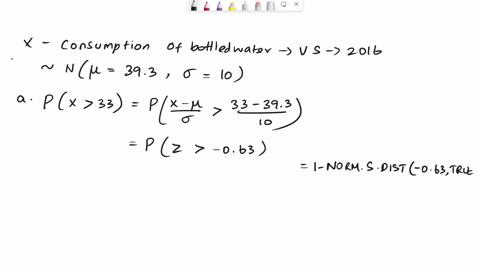 x - consumption of bottled water → US → 2016
~ N(μ = 39.3, σ = 10)
a. P(x > 33) = P(x-μ/σ > 33-39.3/10)
= P(z > -0.63)
= 1-NORM.S.DIST(-0.63,TRUE